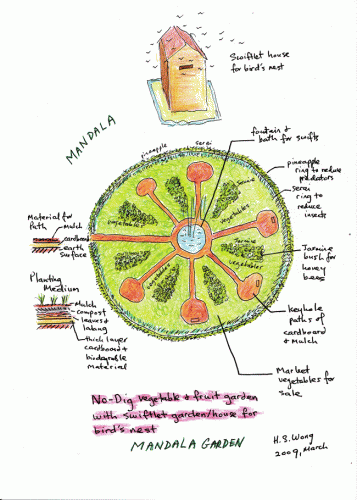 Swiftlet house
for bird's nest
MANDALA
pineapple
serei
fountain &
bath for swifts
pineapple
ring to reduce
predators
serei
ring to
reduce
insects
Jasmine
vegetables
vegetables
Jasmine
vegetables
vegetables
Jasmine
bush for
honey
bees
Material for
Path
Mulch
cardboard
earth
surface
Planting
Medium
Mulch
compost
leaves &
lalang
thick layer
cardboard &
biodegrable
material
keyhole
paths of
cardboard
& Mulch
Market
vegetables for
sale
No-Dig vegetable & fruit garden
with swiftlet garden/house for
bird's nest
MANDALA GARDEN
H.S. Wong
2009, March